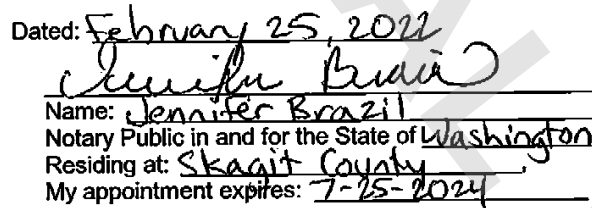 Dated: February 25, 2022
Jennifer Brazil
Name: Jennifer Brazil
Notary Public in and for the State of Washington
Residing at: Skagit County,
My appointment expires: 7-25-2024